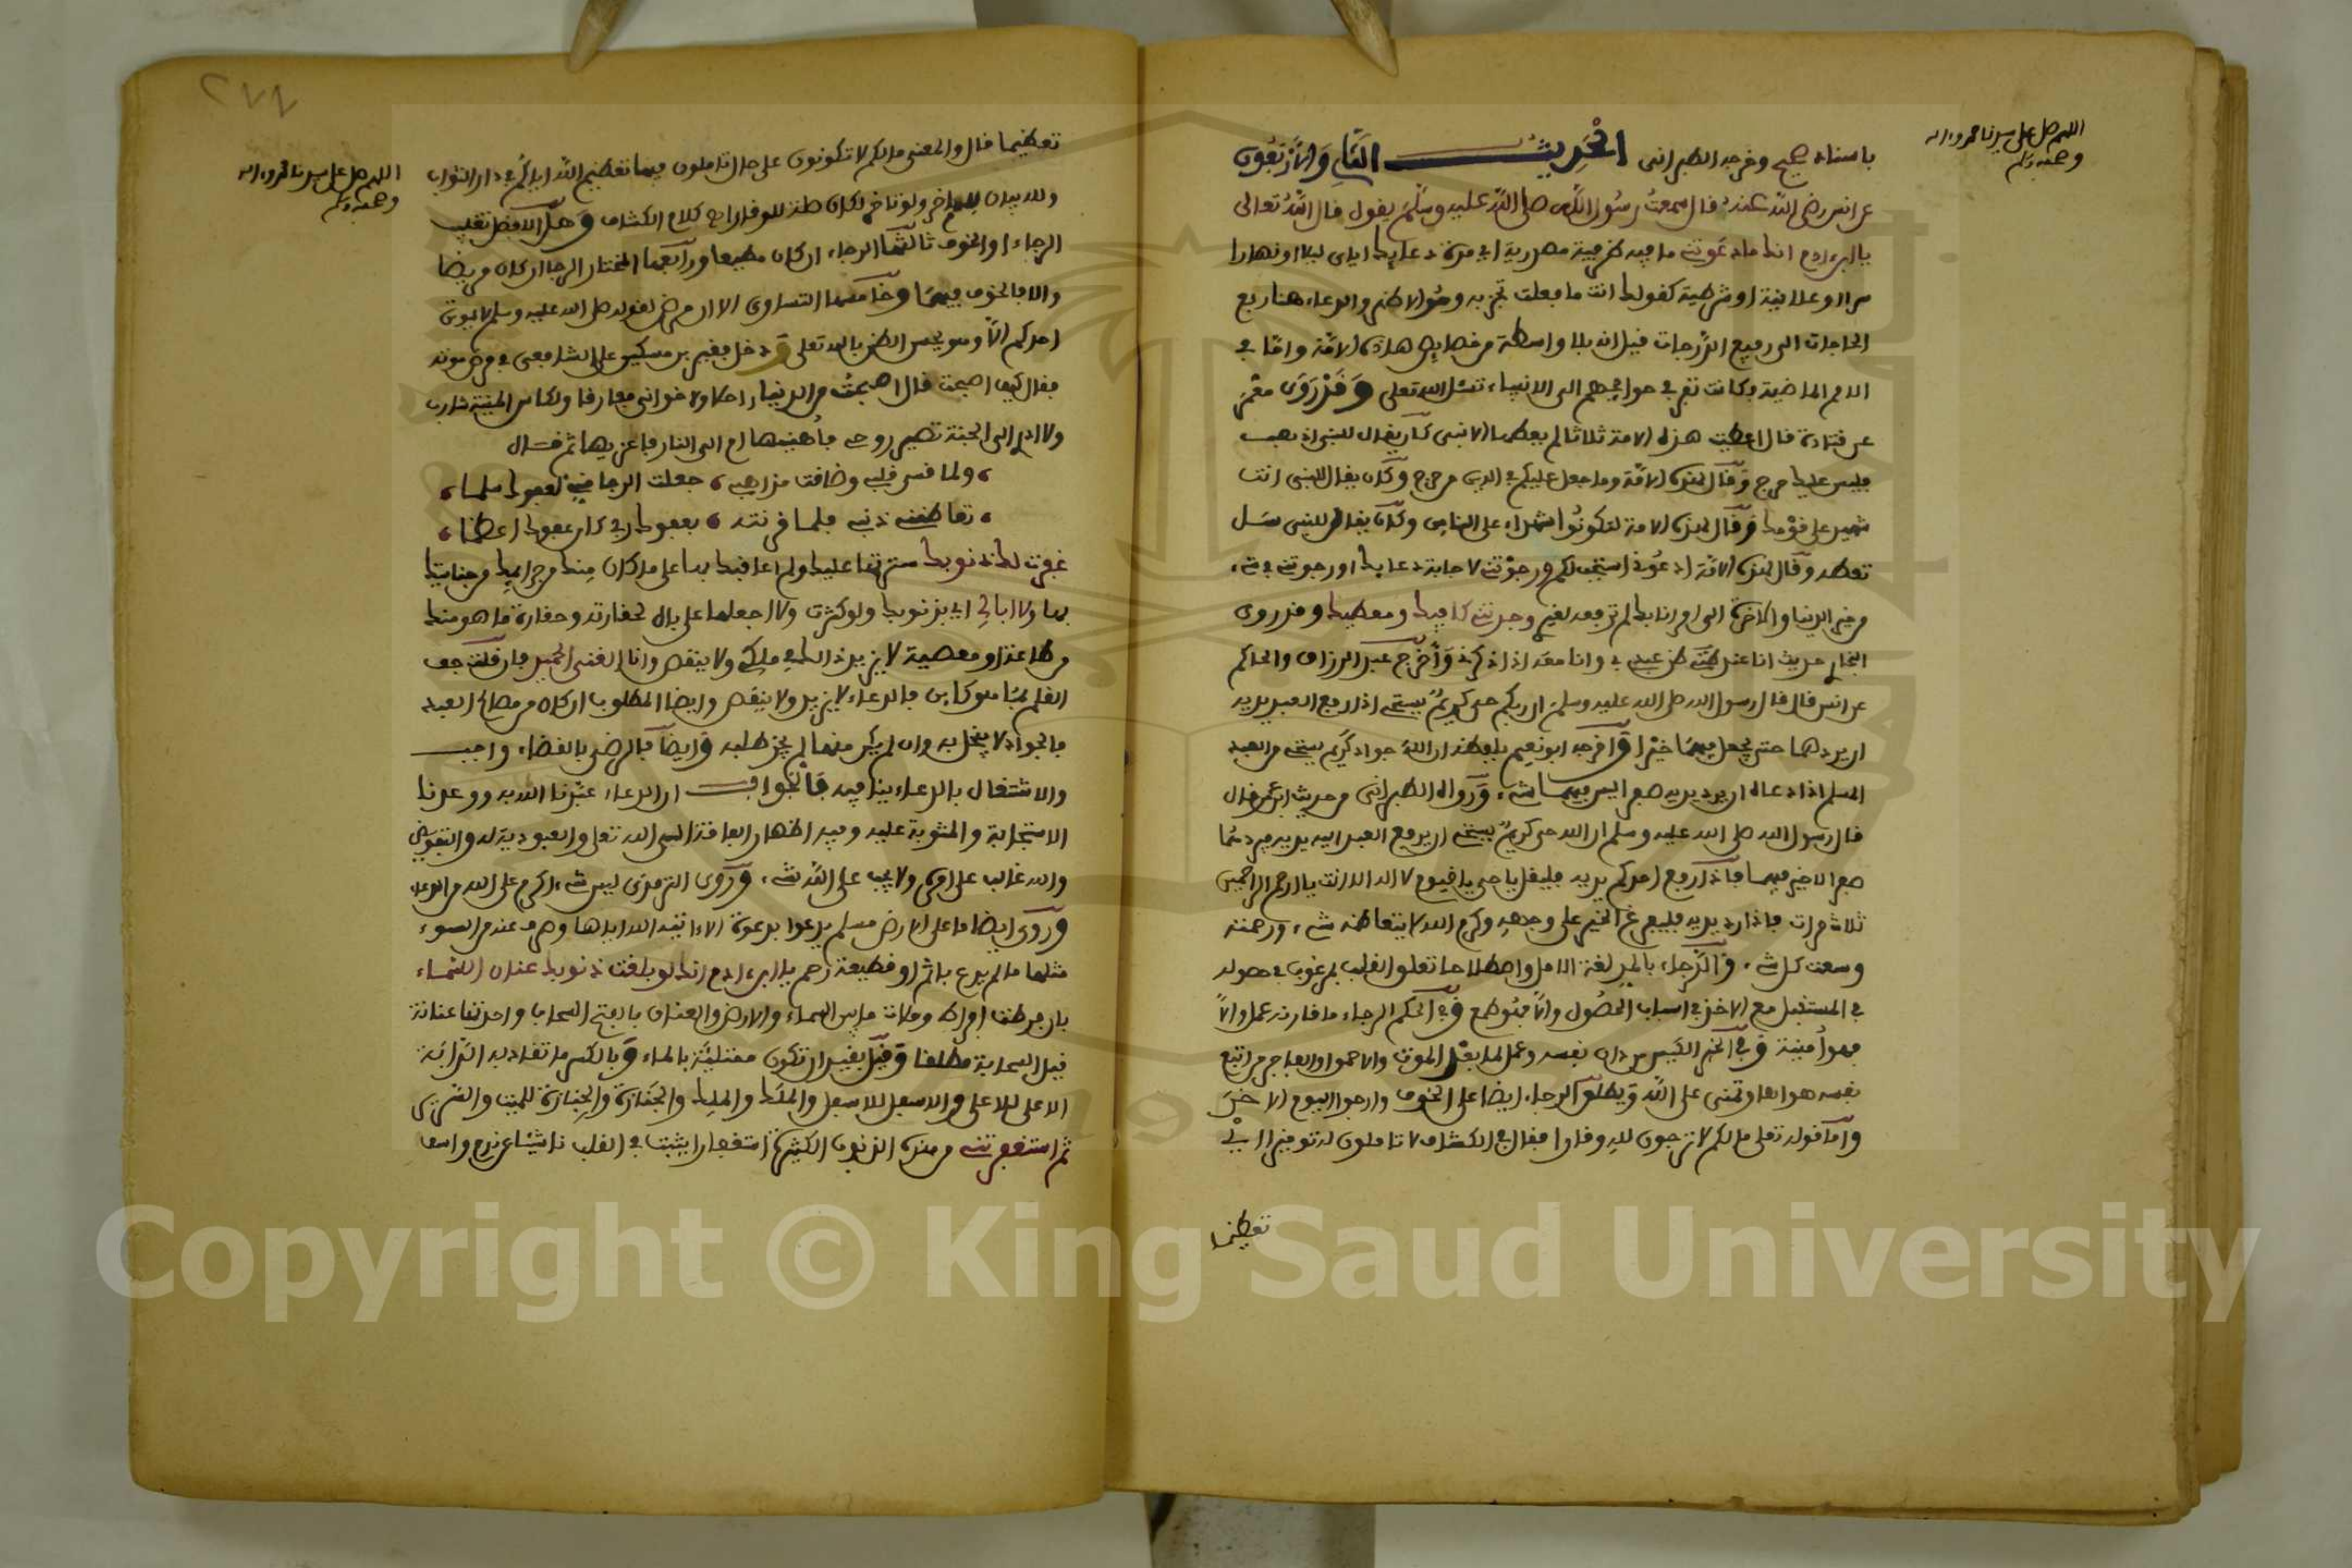 اللهم صل على سيدنا محمد واله
وصحبه وسلم
باسناد صحيح وخرجه الطبراني الحديث الثاني والاربعون
عن انس رضي الله عنه قال سمعت رسول الله صلى الله عليه وسلم يقول قال الله تعالى
يا ابن ادم انك ما دعوتني ما فيه ظرفية مصدرية اي مدة دعايك اياي ليلا او نهارا
سرا وعلانية او شرطية كقولك انت ما فعلت تجز به وهو الاظهر والدعاء هنا رفع
الحاجات الى رفيع الدرجات قيل انه بلا واسطة من خصايص هذه الامة واما في
الامم الماضية فكانت تفزع في حوائجهم الى الانبياء تسئل الله تعالى وقد روى معمر
عن قتادة قال اعطيت هذه الامة ثلاثا لم يعطها الا نبي كان يقال للنبي اذهب
فليس عليك حرج وقال لهذه الامة وما جعل عليكم في الدين من حرج وكان يقال للنبي انت
شهيد على قومك وقال لهذه الامة لتكونوا شهداء على الناس وكان يقال للنبي سل
تعطه وقال لهذه الامة ادعوني استجب لكم ورجوتني لاجابة دعايك او رجوتني في شيء
من خير الدنيا والاخرة الى امرنا بك لم ترفعه لغيري وجدتني كافيك ومعطيك وقد روى
البخاري حديث انا عند ظن عبدي بي وانا معه اذا ذكرني واخرج عبد الرزاق والحاكم
عن انس قال قال رسول الله صلى الله عليه وسلم ان ربكم حي كريم يستحي اذا رفع العبد يديه
ان يردهما حتى يجعل فيهما خيرا واخرجه ابو نعيم بلفظه ان الله جواد كريم يستحي من العبد
المسلم اذا دعاه ان يرد يديه صفرا ليس فيهما شيء ورواه الطبراني من حديث ابن عمر قال
قال رسول الله صلى الله عليه وسلم ان الله حي كريم يستحي ان يرفع العبد اليه يديه فيردهما
صفرا لا خير فيهما فاذا رفع احدكم يديه فليقل يا حي يا قيوم لا اله الا انت يا ارحم الراحمين
ثلاث مرات فاذا رد يديه فليفرغ الخير على وجهه وكرم الله لا يتعاظمه شيء ورحمته
وسعت كل شيء والرجاء بالمد لغة الامل واصطلاحا تعلق القلب بمرغوب في حصوله
في المستقبل مع الاخذ في اسباب الحصول والا فتوطع وفي الحكم الرجاء ما قارنه عمل والا
فهو امنية وفي الخبر الكيس من دان نفسه وعمل لما بعد الموت والاحمق او العاجز من اتبع
نفسه هواها وتمنى على الله ويطلق الرجاء ايضا على الخوف وارجوا اليوم الاخر
واما قوله تعلى ما لكم لا ترجون لله وقارا فقال في الكشاف لا تاملون له توقيرا اي
تعظيما
٢٧٧
اللهم صل على سيدنا محمد واله
وصحبه وسلم
تعظيما قال والمعنى ما لكم لا تكونون على حال تاملون فيها تعظيم الله اياكم في دار الثواب
ولله بيان للموقر ولو تاخر لكان صلة للوقار اه كلام الكشاف وهل الافضل تغليب
الرجاء او الخوف ثالثها الرجاء ان كان مطيعا ورابعها المختار الرجاء ان كان مريضا
والا فالخوف فيهما وخامسها التساوي الا ان مرض لقوله صلى الله عليه وسلم لا يموتن
احدكم الا وهو يحسن الظن بالله تعلى ودخل فقير بن مسكين على الشافعي في مرض موته
فقال كيف اصبحت قال اصبحت من الدنيا راحلا ولاخواني مفارقا ولكاس المنية شاربا
ولا ادري الى الجنة تصير روحي فاهنيها ام الى النار فاعزيها ثم قال
ولما قسى قلبي وضاقت مذاهبي جعلت الرجا مني لعفوك سلما
تعاظمني ذنبي فلما قرنته بعفوك ربي كان عفوك اعظما
غفرت لك ذنوبك سترتها عليك ولم اعاقبك بها على ما كان منك من جرايمك وجناياتك
بها ولا ابالي اي بذنوبك ولو كثرت ولا اجعلها على بال لحقارته وحقارة ما هو منك
من طاعة او معصية لا يزيد ذلك في ملكي ولا ينقص وانا الغني الحميد فان قلت جف
القلم بما هو كاين فالدعاء لا يزيد ولا ينقص وايضا المطلوب ان كان من مصالح العبد
فالجواد لا يبخل به وان لم يكن منها لم يجز طلبه وايضا فالرضى بالقضاء واجب
والاشتغال بالدعاء ينافيه فالجواب ان الدعاء عبدنا الله به ووعدنا
الاستجابة والمثوبة عليه وفيه اظهار الفاقة الى الله تعلى والعبودية له والتفويض
والله غالب على امره ولا يجب على الله شيء وروى الترمذي ليس شيء اكرم على الله من الدعاء
وروى ايضا ما على الارض مسلم يدعوا بدعوة الا اتيه الله اياها وصرف عنه من السوء
مثلها ما لم يدع باثم او قطيعة رحم يا ابن ادم انك لو بلغت ذنوبك عنان السماء
بان فرطت افراط وملات ما بين السماء والارض والعنان بالفتح السحاب واحدتها عنانة
قيل السحابة مطلقا وقيل بقيد ان تكون ممتلية بالماء وبالكسر ما تقاد به الدابة
الاعلى للاعلى والاسفل للاسفل والملك والملك والجنازة والجنازة للميت والسرير
ثم استغفرتني من هذه الذنوب الكثيرة استغفارا يثبت في القلب ناشيا عن ندم واسف